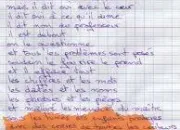 mais il dit oui avec le coeur
il dit oui à ce qu'il aime
il dit non au professeur
il est debout
on le questionne
et tous les problèmes sont posés
soudain le fou rire le prend
et il efface tout
les chiffres et les mots
les dates et les noms
les phrases et les pièges
et malgré les menaces du maître
les huées des enfants prodiges
avec des craies de toutes les couleurs